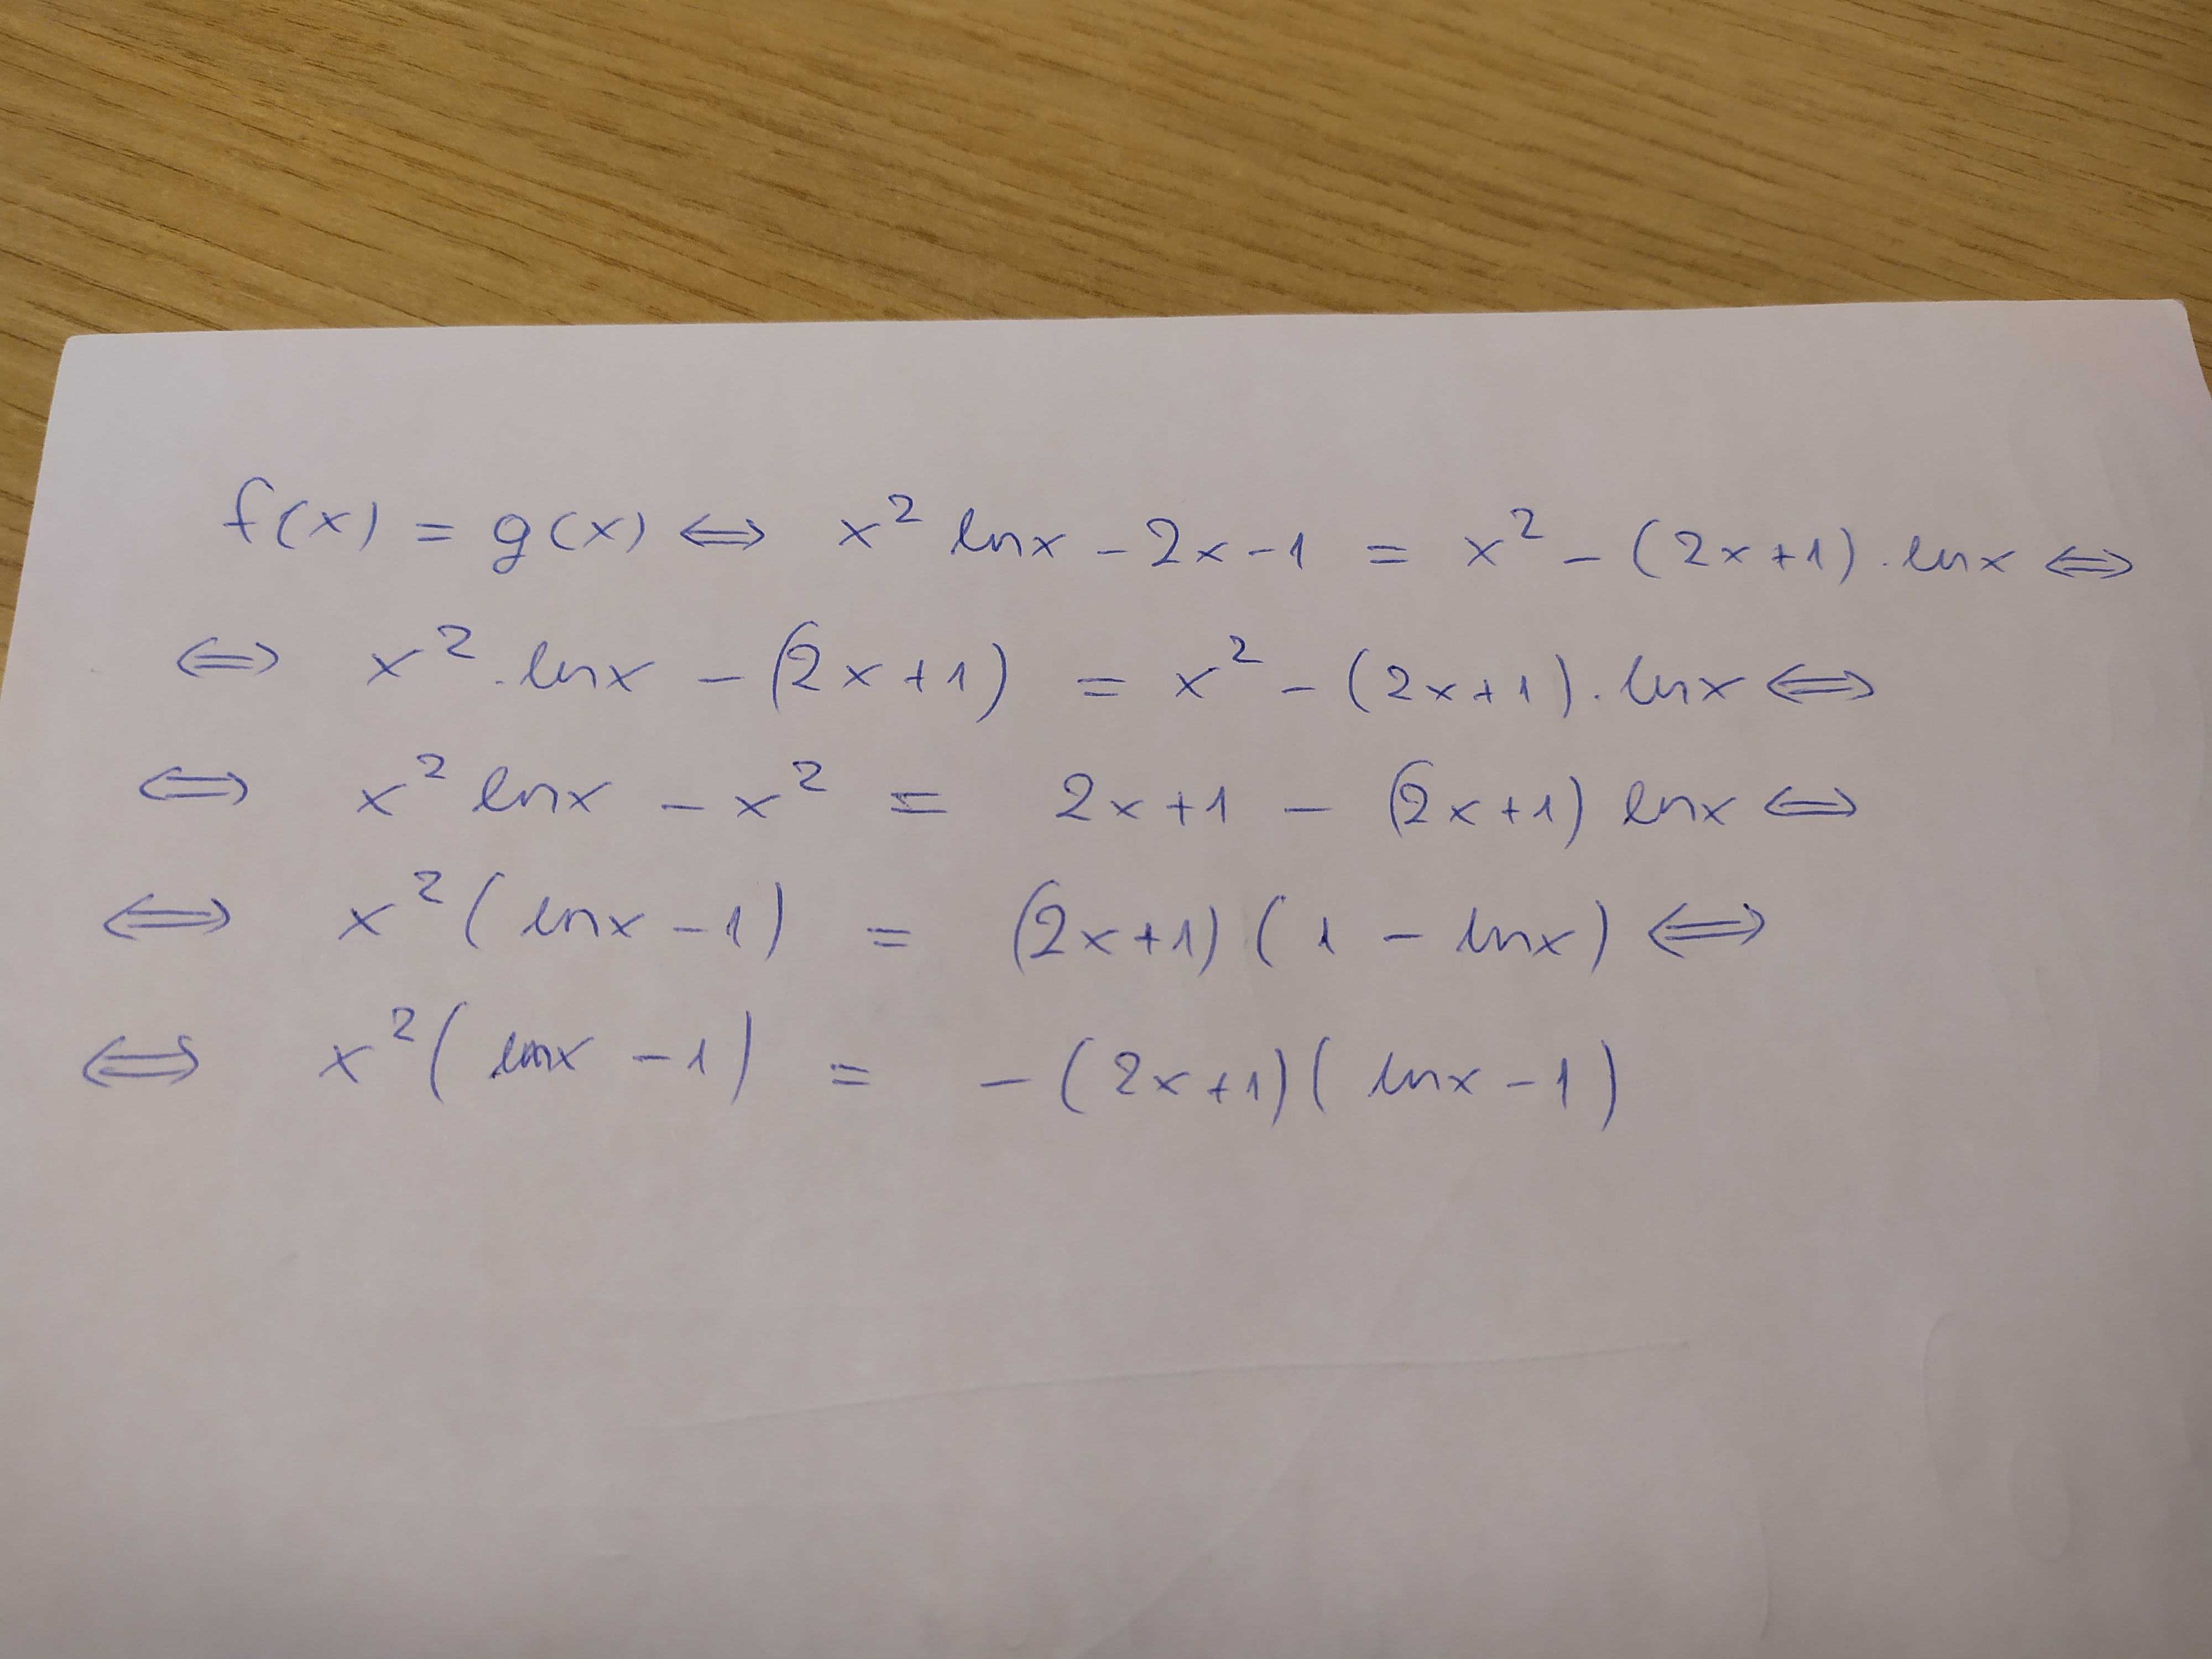 f(x) = g(x) ⟺ x² lnx - 2x - 1 = x² - (2x+1) · lnx ⟺
⟺ x² · lnx - (2x+1) = x² - (2x+1) · lnx ⟺
⟺ x² lnx - x² = 2x+1 - (2x+1) lnx ⟺
⟺ x² (lnx - 1) = (2x+1) (1 - lnx) ⟺
⟺ x² (lnx - 1) = - (2x+1) (lnx - 1)